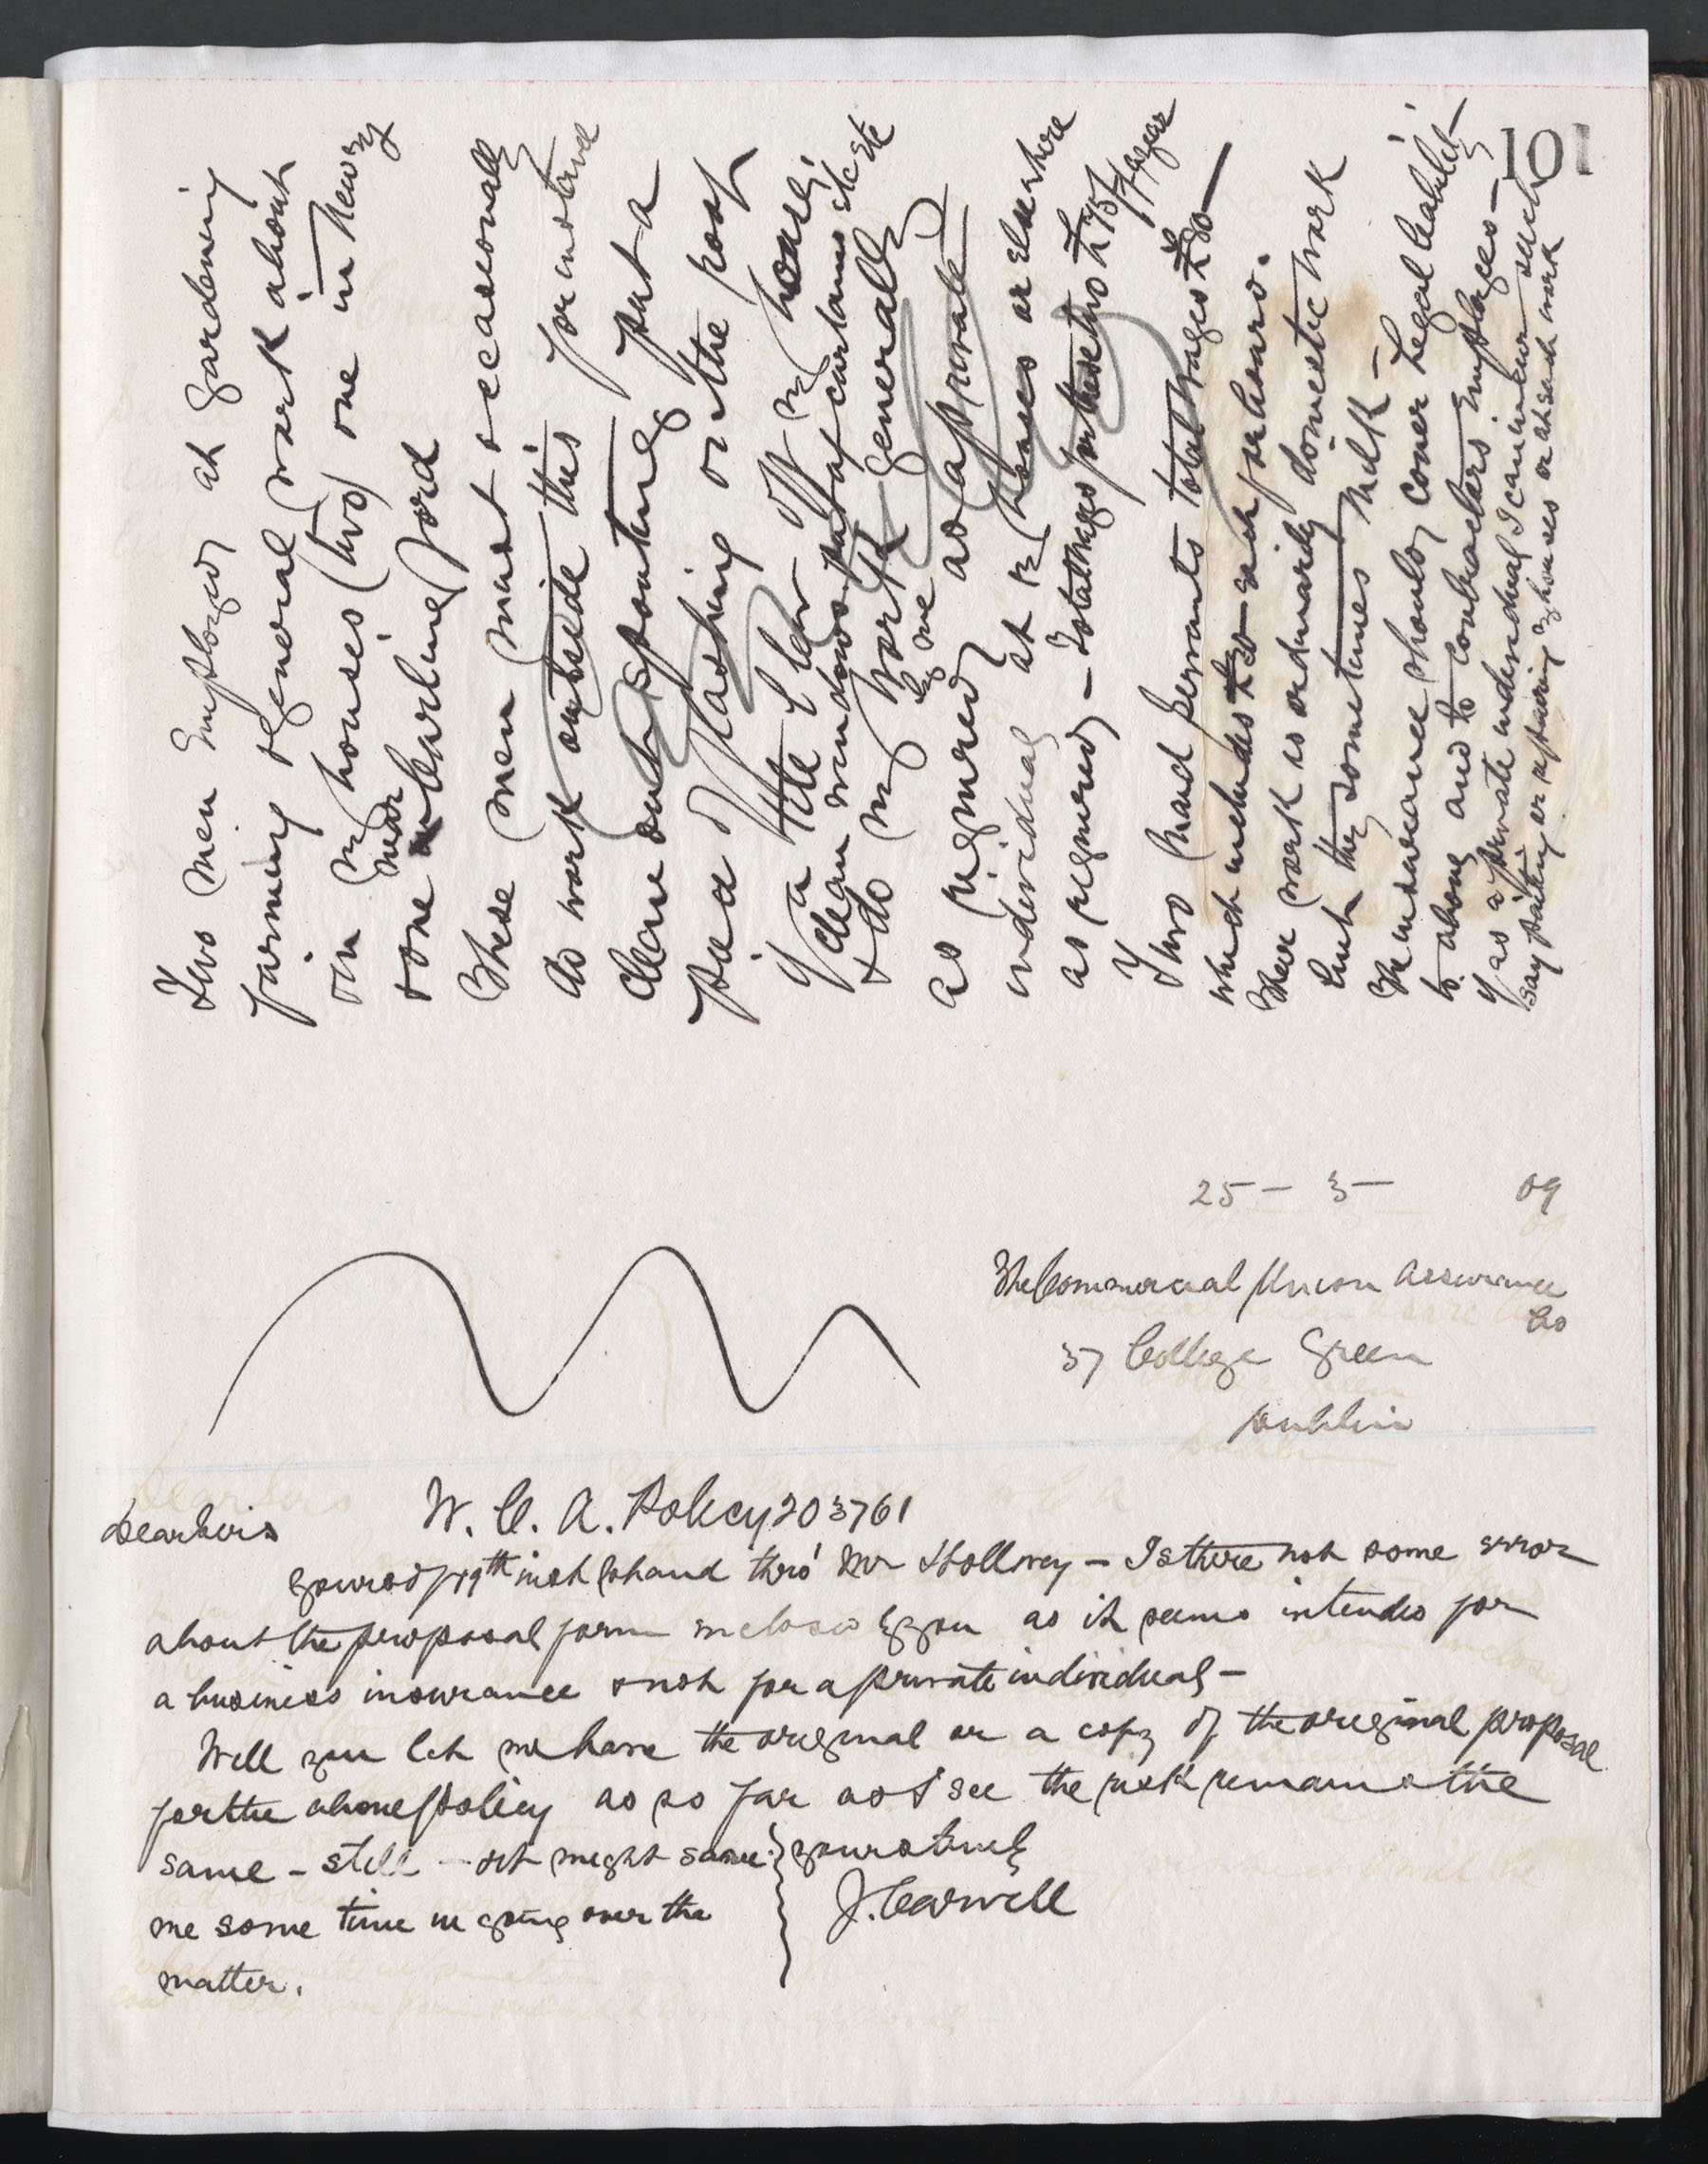 101
Two men employed at gardening
farming & general work about
own my houses (two) one in Newry
& one near Carlingford
These men must occasionally
do work outside this for instance
clean out spouting put a
piece of flashing on the roof
if a slate blew off my house;
clean windows put up curtains etc etc
& do my work generally
as required by me as a private
individual at my houses or elsewhere
as required — Total wages for these two £75 per year
Two maid servants total wages £80 —
which includes £20 each for board.
Their work is ordinarily domestic work
but they sometimes milk —
The insurance should cover legal liability
to above and to contractors employees —
if as a private individual I can incur such
say painting or repairing my houses or at such work
25 — 3 — 09
The Commercial Union Assurance
Co
37 College Green
Dublin
W. C. A. Policy 203761
Dear Sirs
Yours of 19th inst to hand thro' Mr Hollwey — Is there not some error
about the proposal form enclosed by you as it seems intended for
a business insurance & not for a private individual —
Will you let me have the original or a copy of the original proposal
for the above policy as so far as I see the risk remains the
same — still — it might save
me some time in going over the
matter.
Yours truly
J. Carvill